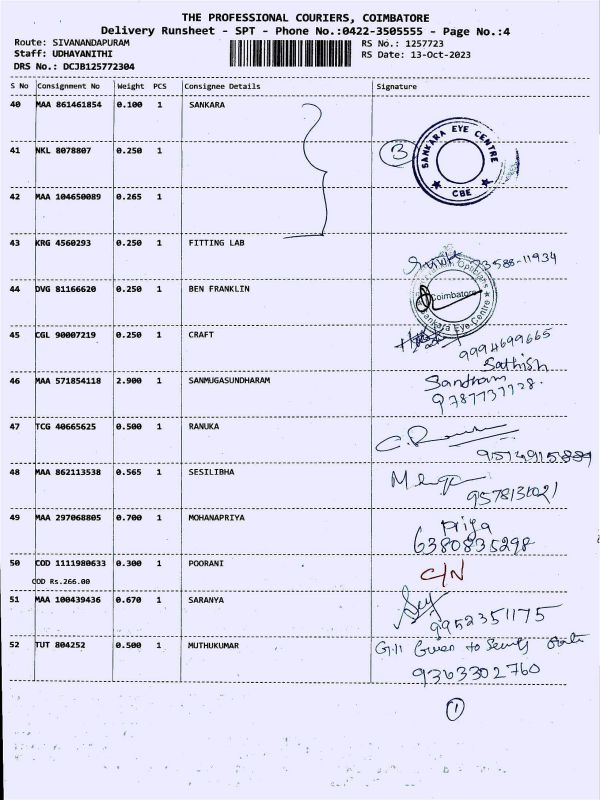 THE PROFESSIONAL COURIERS, COIMBATORE
Delivery Runsheet - SPT - Phone No.:0422-3505555 - Page No.:4
Route: SIVANANDAPURAM RS No.: 1257723
Staff: UDHAYANITHI RS Date: 13-Oct-2023
DRS No.: DCJB125772304
S No Consignment No Weight PCS Consignee Details Signature
40 MAA 861461854 0.100 1 SANKARA
SANKARA EYE CENTRE
CBE
3
41 NKL 8078807 0.250 1
42 MAA 104650089 0.265 1
43 KRG 4560293 0.250 1 FITTING LAB
73588-11934
44 DVG 81166620 0.250 1 BEN FRANKLIN
Coimbatore
Sankara Eye Centre
45 CGL 90007219 0.250 1 CRAFT
9994699665
Sathish
46 MAA 571854118 2.900 1 SANMUGASUNDHARAM
9787737728.
47 TCG 40665625 0.500 1 RANUKA
48 MAA 862113538 0.565 1 SESILIBHA
49 MAA 297068805 0.700 1 MOHANAPRIYA
Priya
6380835298
50 COD 1111980633 0.300 1 POORANI
C/N
COD Rs.266.00
51 MAA 100439436 0.670 1 SARANYA
9952351175
52 TUT 804252 0.500 1 MUTHUKUMAR
to
9363302760
1